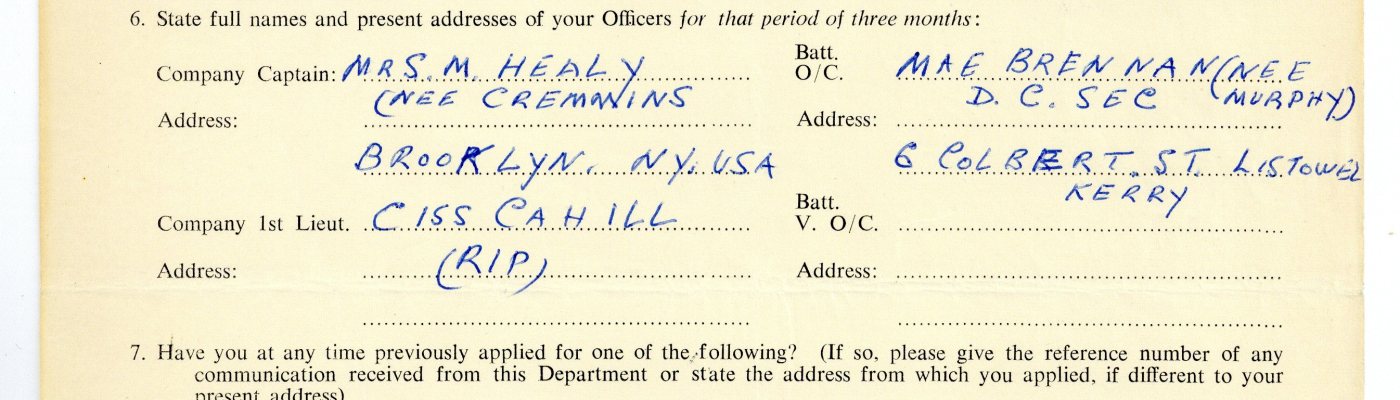 6. State full names and present addresses of your Officers for that period of three months:
Company Captain: MRS. M. HEALY
(NEE CREMMINS
Address:
BROOKLYN. NY. USA
Company 1st Lieut. CISS CAHILL
Address: (RIP)
Batt.
O/C. MAE BRENNAN (NEE
D. C. SEC MURPHY)
Address:
6 COLBERT. ST. LISTOWEL
KERRY
Batt.
V. O/C.
Address:
7. Have you at any time previously applied for one of the following? (If so, please give the reference number of any
communication received from this Department or state the address from which you applied, if different to your
present address)